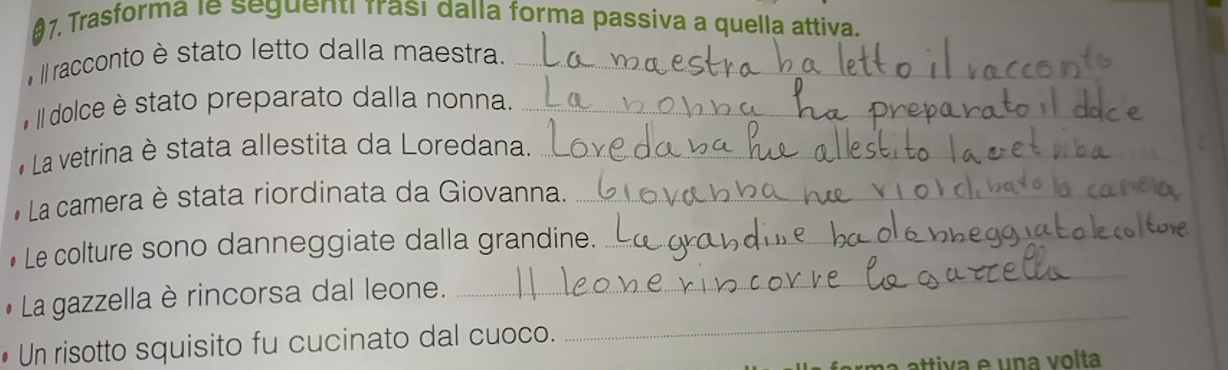 7. Trasforma le seguenti frasi dalla forma passiva a quella attiva.
• Il racconto è stato letto dalla maestra. La maestra ha letto il racconto
• Il dolce è stato preparato dalla nonna. La nonna ha preparato il dolce
• La vetrina è stata allestita da Loredana. Loredana ha allestito la vetrina
• La camera è stata riordinata da Giovanna. Giovanna ha riordinato la camera
• Le colture sono danneggiate dalla grandine. La grandine ha danneggiato le colture
• La gazzella è rincorsa dal leone. Il leone rincorre la gazzella
• Un risotto squisito fu cucinato dal cuoco.
forma attiva e una volta